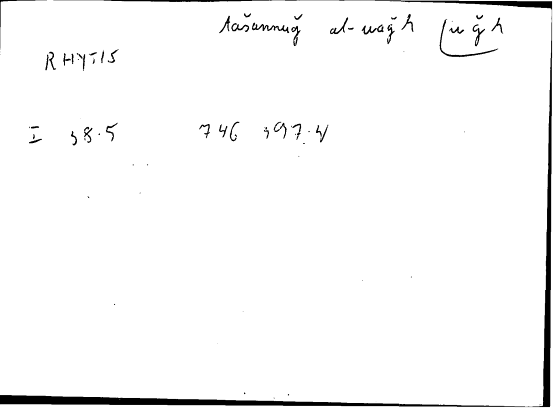 tašannuǧ al-waǧh wǧh
RHYTIS
I 38.5 746 397.4